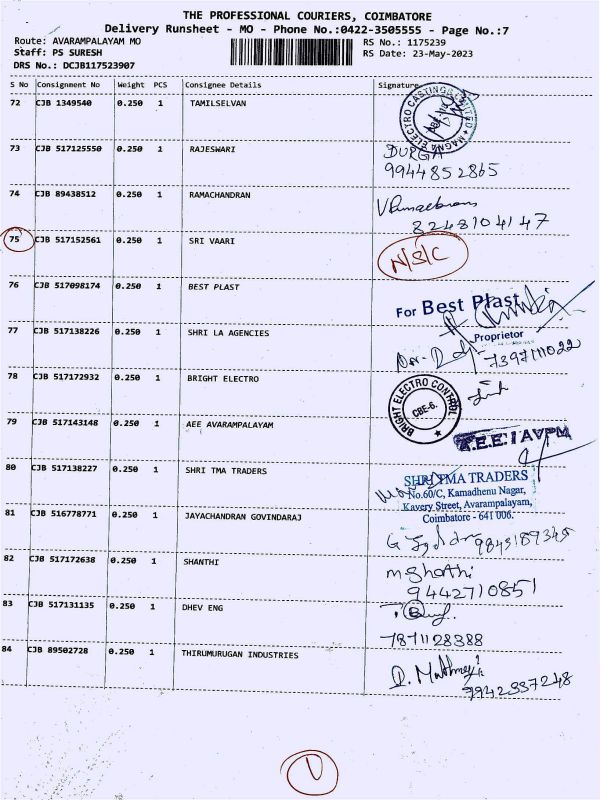 THE PROFESSIONAL COURIERS, COIMBATORE
Delivery Runsheet - MO - Phone No.:0422-3505555 - Page No.:7
Route: AVARAMPALAYAM MO RS No.: 1175239
Staff: PS SURESH RS Date: 23-May-2023
DRS No.: DCJB117523907
S No Consignment No Weight PCS Consignee Details Signature
72 CJB 1349540 0.250 1 TAMILSELVAN
MAGNA ELECTRO CASTINGS LIMITED
73 CJB 517125550 0.250 1 RAJESWARI DURGA
9944852865
74 CJB 89438512 0.250 1 RAMACHANDRAN
8248104147
75 CJB 517152561 0.250 1 SRI VAARI N/S/C
76 CJB 517098174 0.250 1 BEST PLAST
For Best Plast
Proprietor
77 CJB 517138226 0.250 1 SHRI LA AGENCIES
7397111022
78 CJB 517172932 0.250 1 BRIGHT ELECTRO
BRIGHT ELECTRO CONTROL
CBE-6.
79 CJB 517143148 0.250 1 AEE AVARAMPALAYAM
A.E.E./AVPM
80 CJB 517138227 0.250 1 SHRI TMA TRADERS
SHRI TMA TRADERS
No.60/C, Kamadhenu Nagar,
Kavery Street, Avarampalayam,
Coimbatore - 641 006.
81 CJB 516778771 0.250 1 JAYACHANDRAN GOVINDARAJ
9843189345
82 CJB 517172638 0.250 1 SHANTHI
9442710851
83 CJB 517131135 0.250 1 DHEV ENG
7871128388
84 CJB 89502728 0.250 1 THIRUMURUGAN INDUSTRIES
9942337248